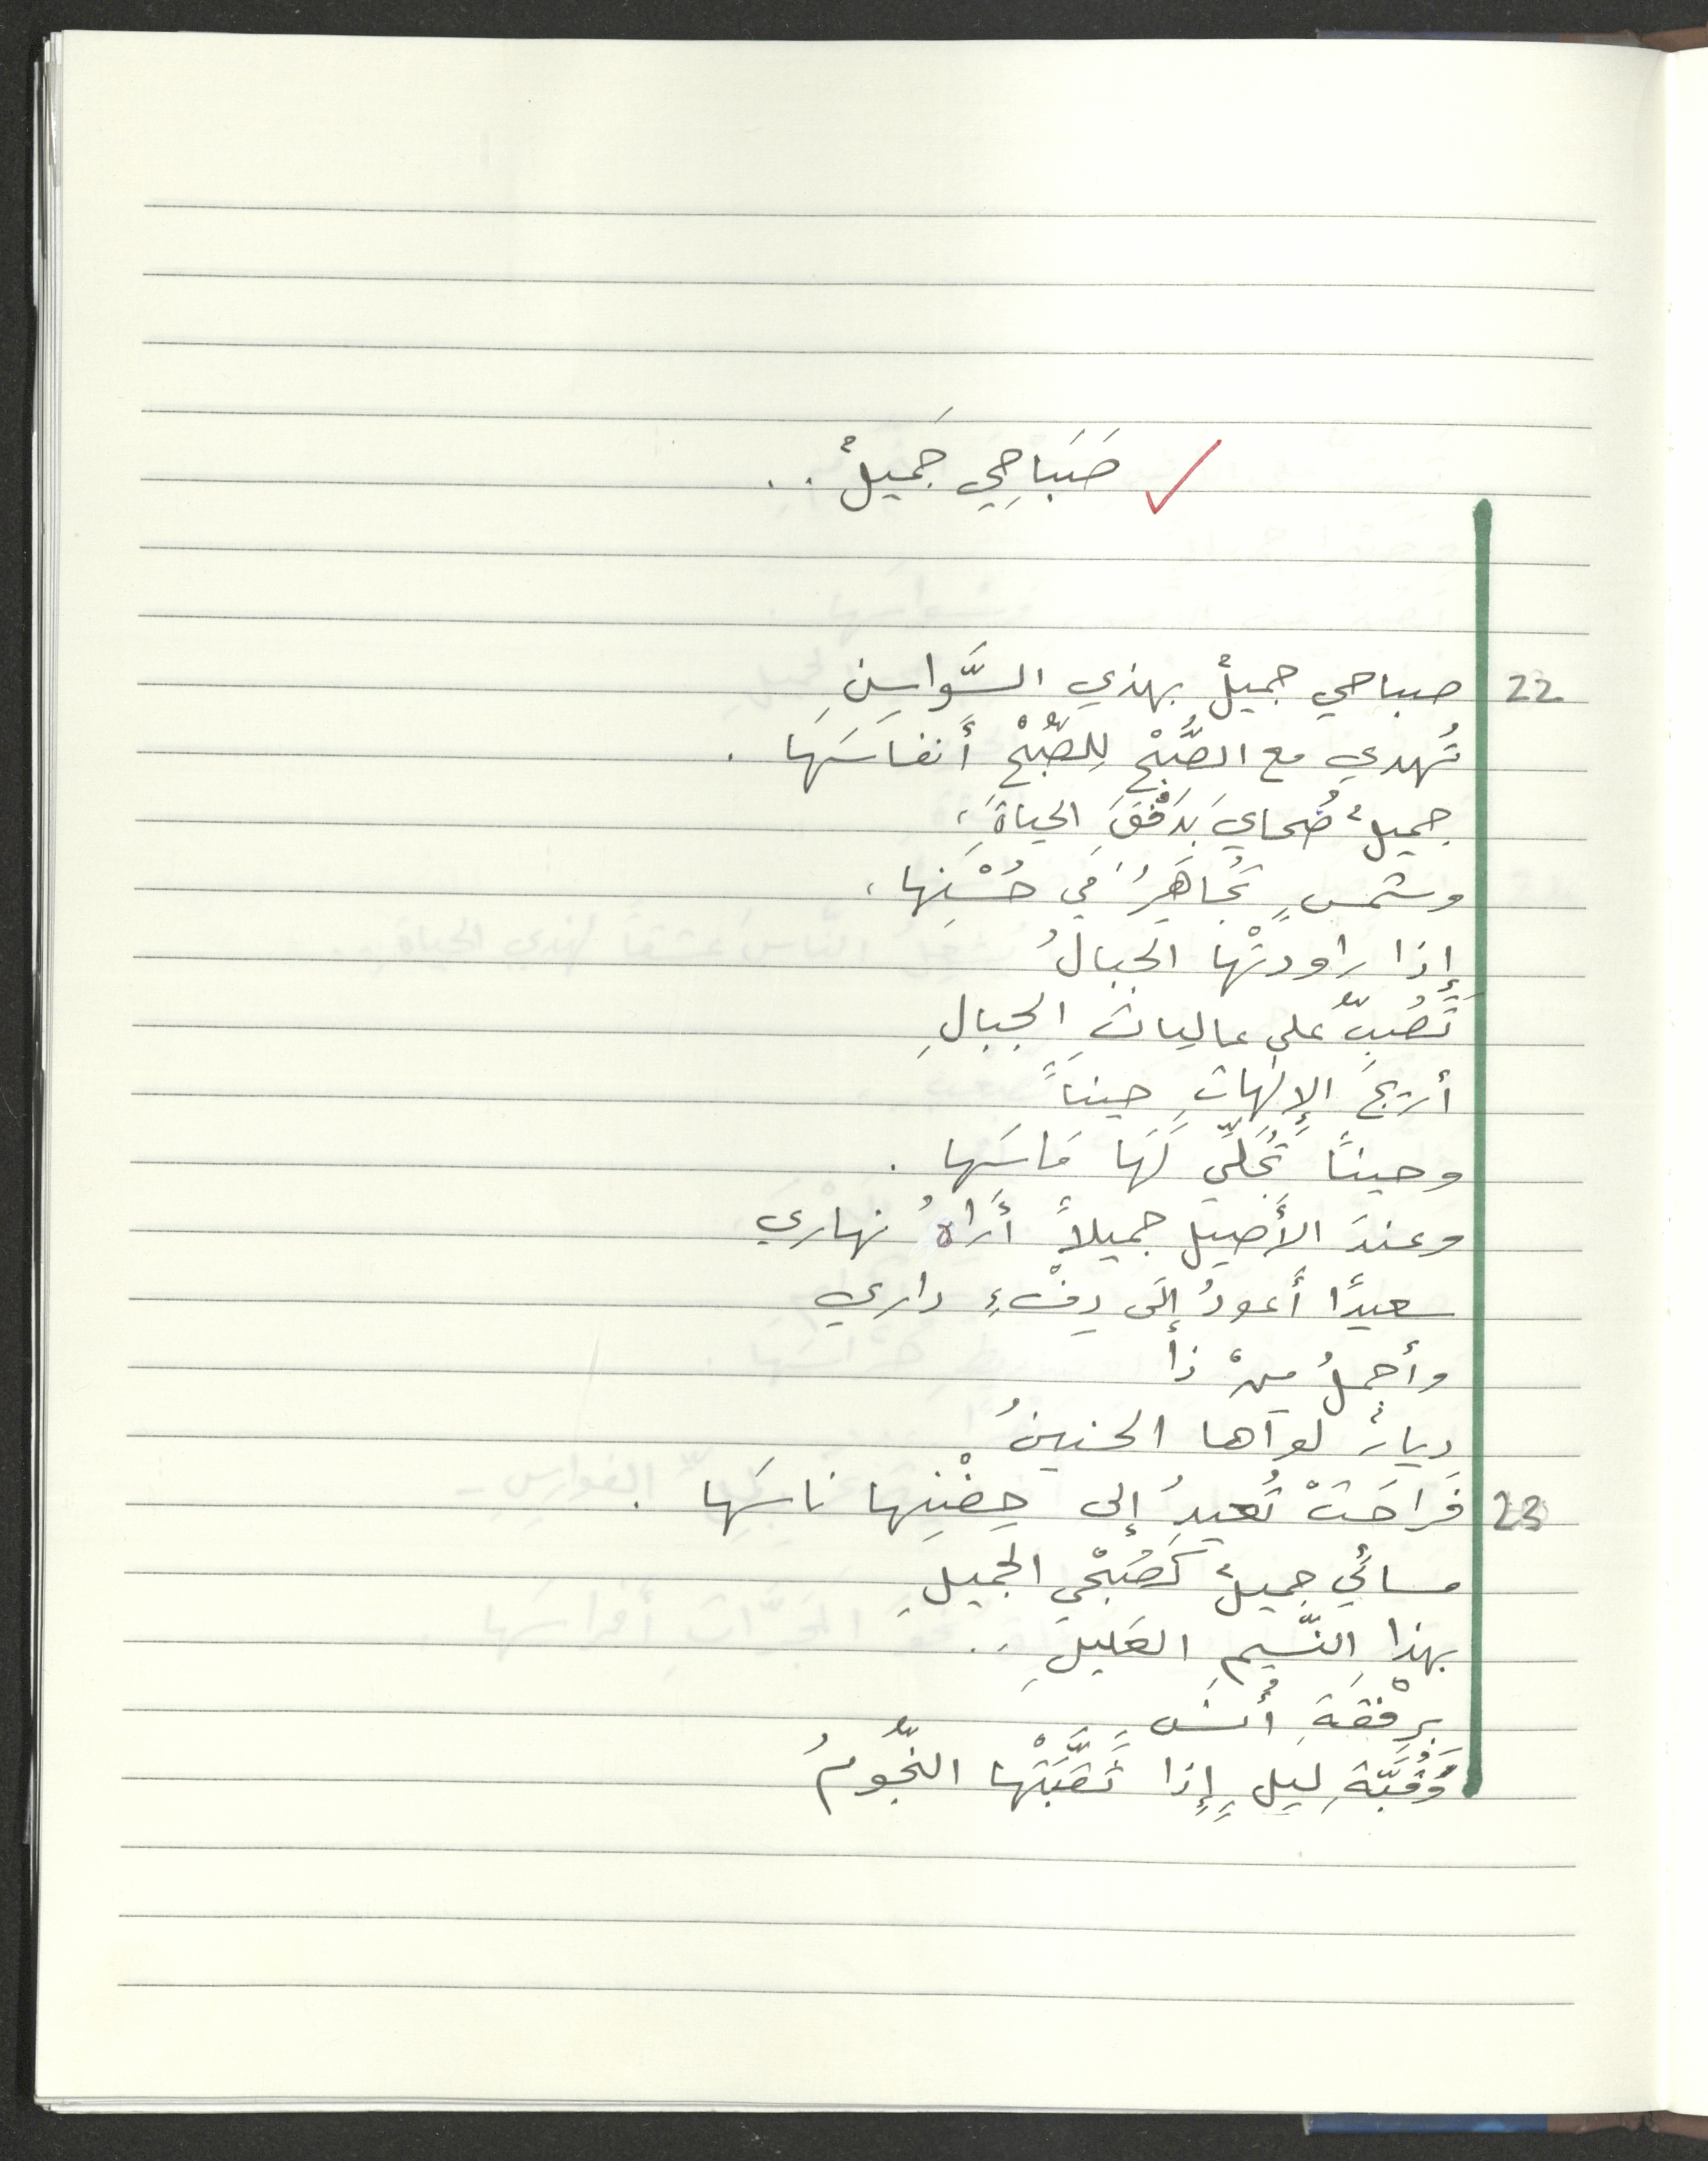 صَبَاحِي جَمِيلٌ ..
22 صباحي جميلٌ بهذي السَّواسِنِ
تُهدي مع الصُّبْحِ لِلصُّبْحِ أَنفاسَهَا .
جميلٌ ضُحايَ بِدَفْقِ الحياةِ ،
وشمسٍ تُجَاهِرُ في حُسْنِها ،
إِذا راودتْها الجبالُ
تَصُبُّ على عالياتِ الجبالِ
أريجَ الإِلٰهاتِ حيناً
وحيناً تُجَلِّي لَهَا مَاسَها .
وعندَ الأَصيلِ جميلاً أَرَاهُ نهاري
سعيدًا أَعودُ إِلَى دِفْءِ داري
وأجملُ مِنْ ذا
ديارٌ لواها الحنينُ
23 فَراحَتْ تُعيدُ إلى حِضْنِها ناسَها .
مسائي جميلٌ كَصُبْحِي الجميلِ
بهذا النَّسيمِ العَليلِ ..
بِرِفْقَةِ أُنسٍ
وَقُبَّةِ ليلٍ إِذا ثَقَّبَتْها النُّجُومُ